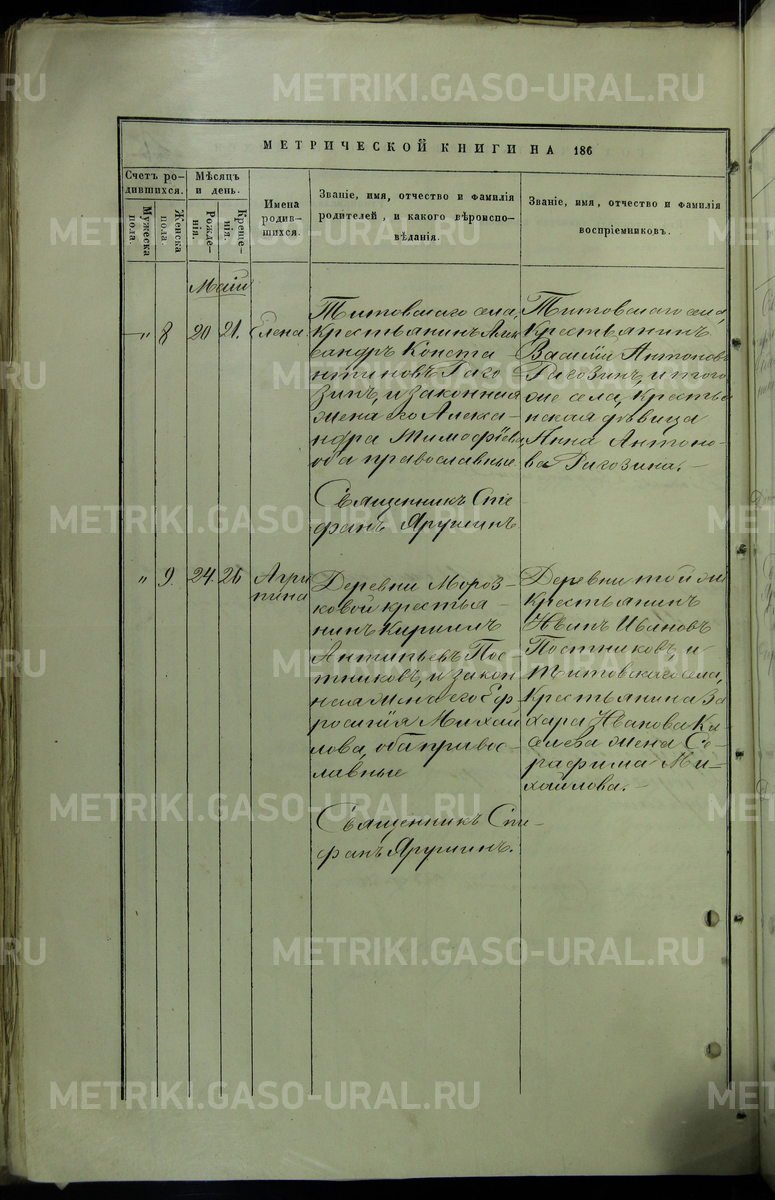 МЕТРИЧЕСКОЙ КНИГИ НА 186
Счетъ ро-
дившихся.
Мужеска
пола.
Женска
пола.
Мѣсяцъ
и день.
Рожде-
нія.
Креще-
нія.
Имена
родив-
шихся.
Званіе, имя, отчество и фамилія
родителей, и какого вѣроиспо-
вѣданія.
Званіе, имя, отчество и фамилія
воспріемниковъ.
Маій
„ 8 20 21. Елена.
Титовскаго села,
крестьянинъ Алек
сандръ Конста
нтиновъ Раго
зинъ, и законная
жена его Алекса-
ндра Тимофѣева,
оба православные.
Священникъ Сте-
фанъ Ярушинъ
Титовскаго села,
крестьянинъ
Василій Антоновъ
Рагозинъ, и того
же села, крестья
нская дѣвица
Анна Антоно-
ва Рагозина. –
„ 9. 24. 26 Агри
пина
Деревни Мороз-
ковой крестья-
нинъ Кириллъ
Антипьевъ Пос
тниковъ, и закон
ная жена его Еф
росинія Михай
лова, оба правос-
лавные
Священникъ Сте-
фанъ Ярушинъ.
Деревни той же
крестьянинъ
Иванъ Ивановъ
Постниковъ, и
Титовскаго села,
крестьянина За
хара Иванова
жена Се-
рафима Ми-
хайлова. –
METRIKI.GASO-URAL.RU